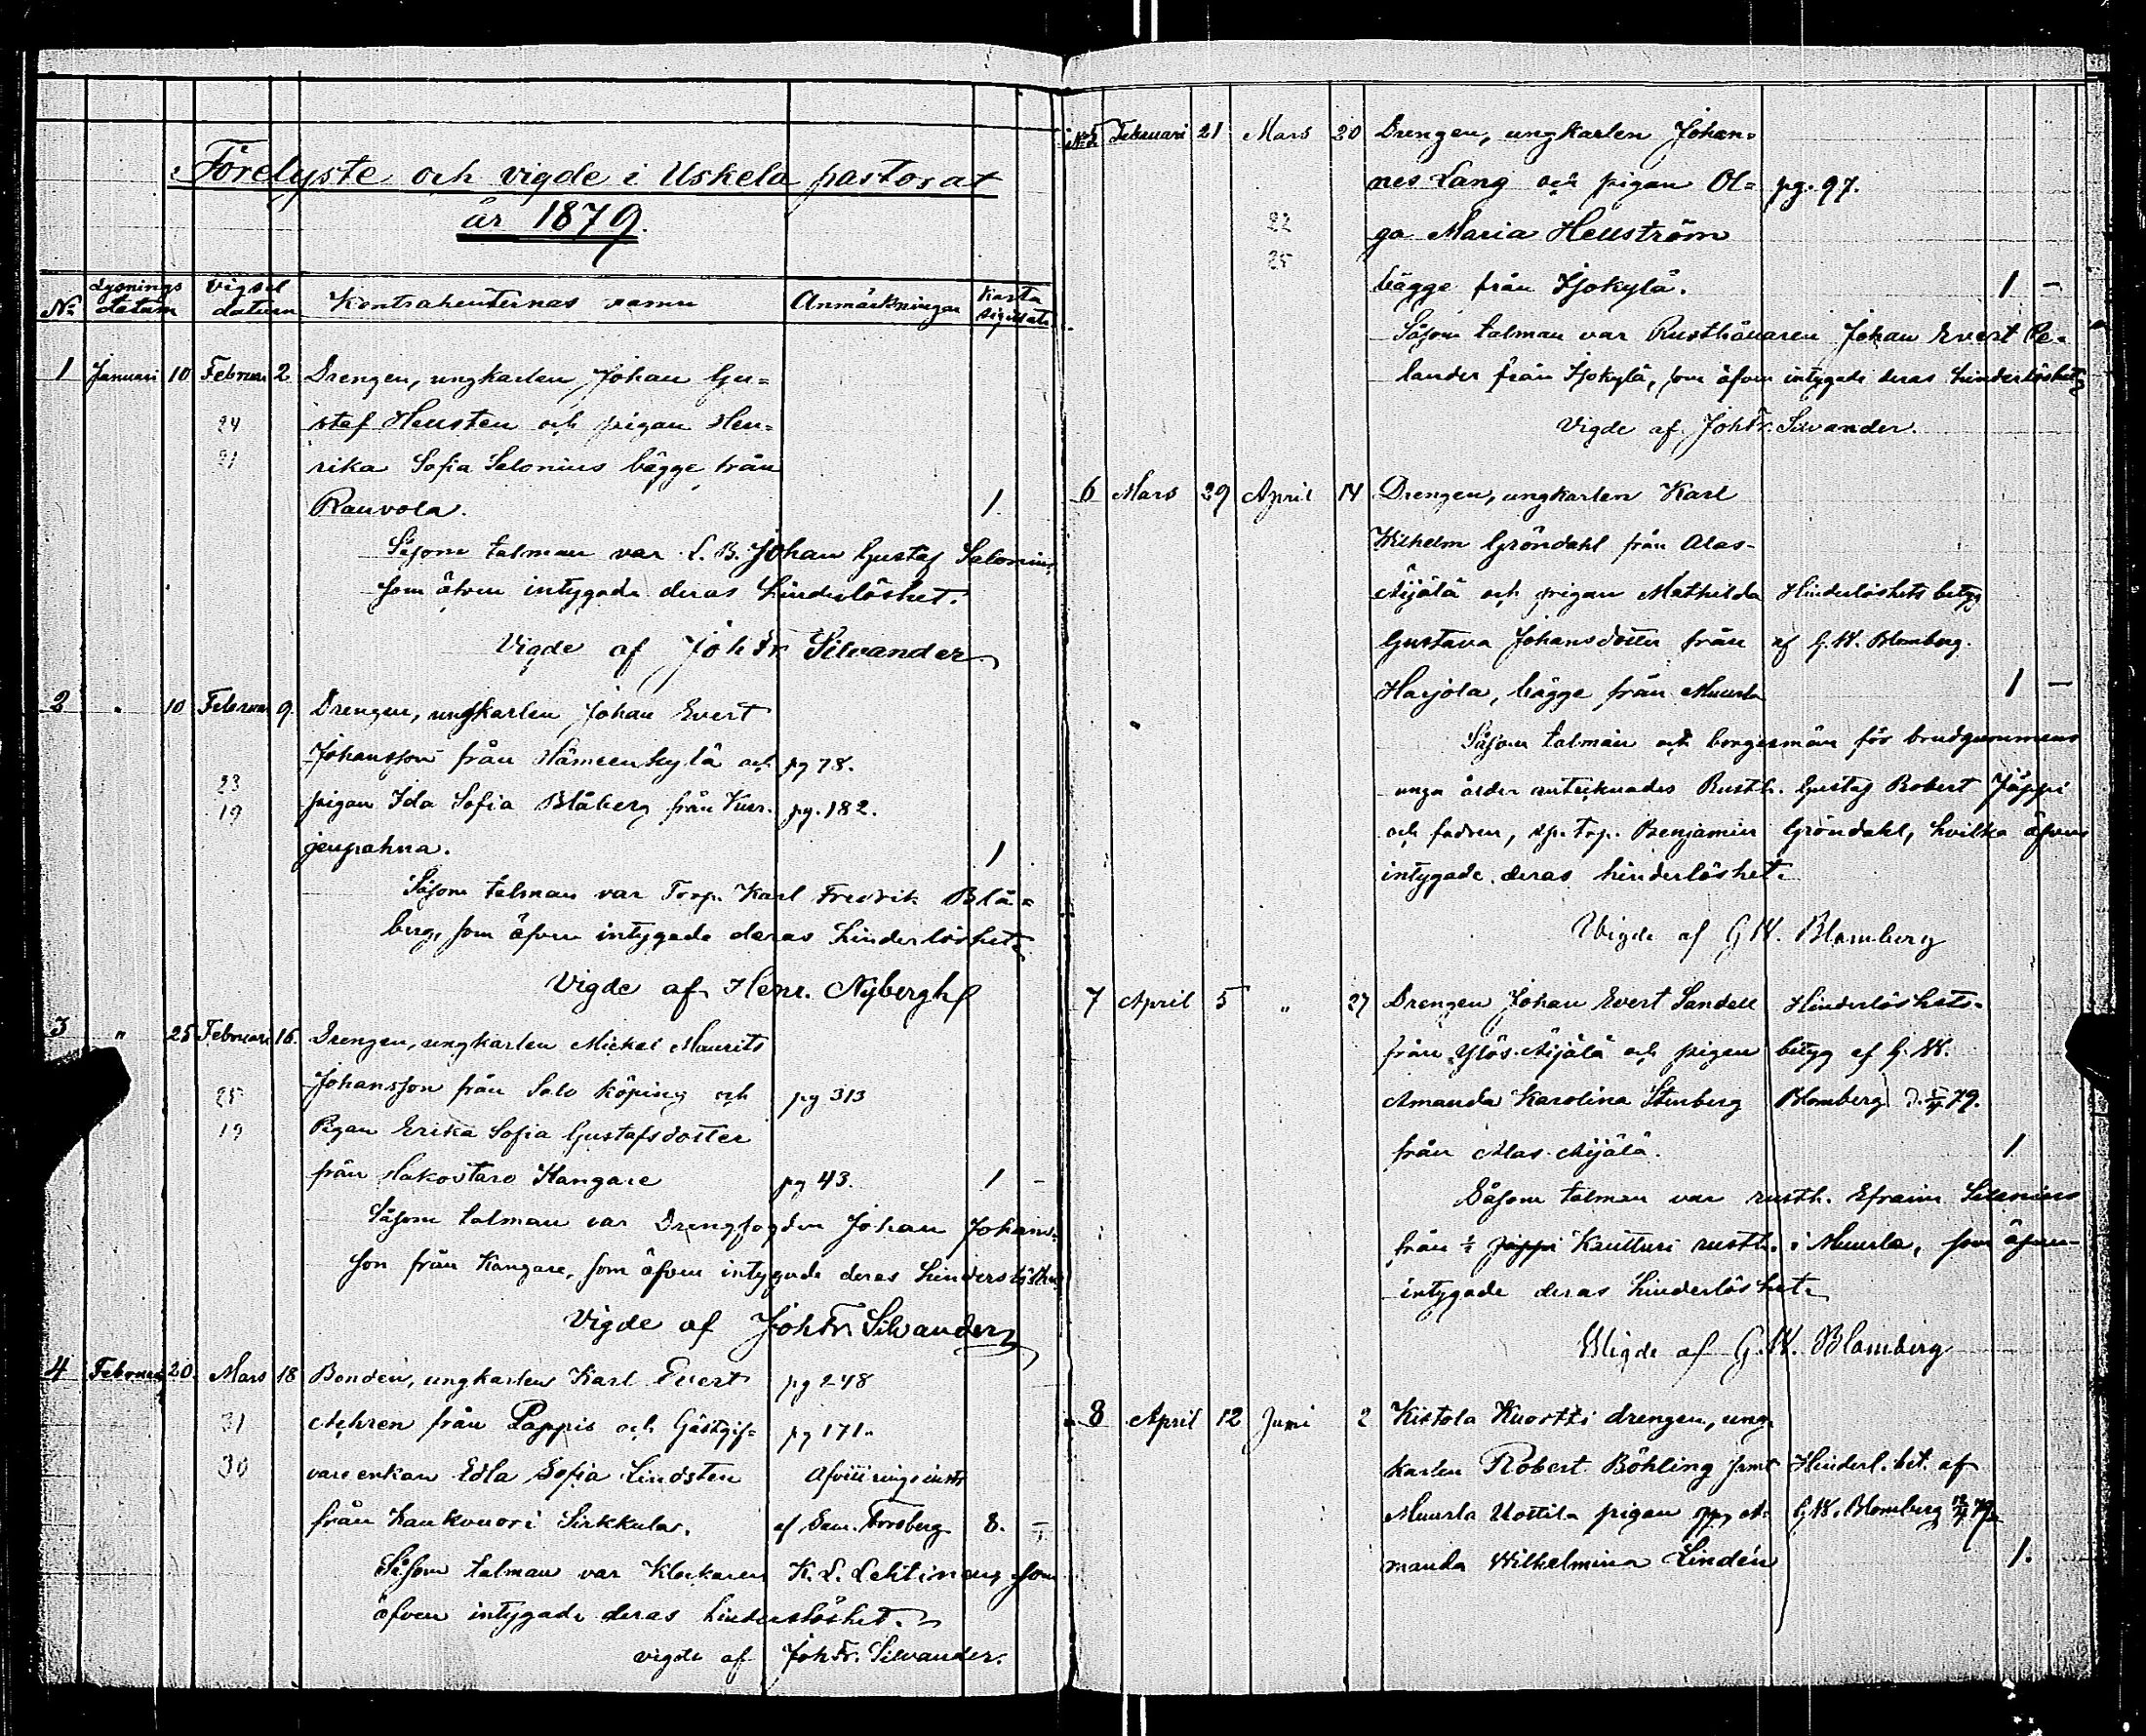 Förelyste och vigde i Uskela pastorat
år 1879.
No Lysnings datum Vigsel datum Kontrahenternas namn Anmärkningar Karta
1 Januari 10 Februari 2 Drengen, ungkarlen Johan Gu=
24 staf Hellsten och pigan Hen=
21 rika Sofia Salonius bägge från
Rauvola. 1.
Såsom talman var L. B. Johan Gustaf Salonius,
som äfven intygade deras hinderlöshet.
Vigde af Joh Fr. Silvander
2 " 10 Februari 9. Drengen, ungkarlen Johan Evert
Johansson från Hämeenkylä och pg 78.
23
19 pigan Ida Sofia Blåberg från Kur- pg. 182.
jenpahna. 1
Såsom talman var Torp. Karl Fredrik Blå=
berg, som äfven intygade deras hinderlöshet
Vigde af Henr. Nybergh
3 " 25 Februari 16. Drengen, ungkarlen Mickel Maurits
25 Johansson från Salo köping och pg 313
19 Pigan Erika Sofia Gustafsdotter
från Hakostaro Kangare pg 43. 1 -
Såsom talman var Drengfogden Johan Johans=
son från Kangare, som äfven intygade deras hinderslöshet
Vigde af Joh Fr. Silvander
4 Februari 20. Mars 18 Bonden, ungkarlen Karl Evert pg 248
31 Achren från Pappis och Gästgif= pg 171.
30 vare enkan Edla Sofia Lindsten
från Kaukvuori Sirkkula. af Sam. Forsberg 8. -
Såsom talman var Klockaren K. L. Lehtinen, som
äfven intygade deras hinderslöshet.
vigde af Joh Fr. Silvander.
No 5 Februari 21 Mars 20 Drengen, ungkarlen Johan=
nes Lang och pigan Ol= pg. 97.
22 ga Maria Hellström
25
bägge från Isokylä. 1 -
Såsom talman var Rusthållaren Johan Evert
lander från Isokylä, som äfven intygade deras hinderlöshet
Vigde af Joh Fr. Silvander.
6 Mars 29 April 14 Drengen, ungkarlen Karl
Wilhelm Gröndahl från Alas-
Äijälä och pigan Mathilda Hinderlöshets betyg
Gustava Johansdotter från af G. W. Blomberg.
Harjola, bägge från Muurla 1 -
Såsom talman och borgesmän för brudgummens
unga ålder antecknades Rusth. Gustaf Robert Jäppi
och fadren, sp. torp. Benjamin Gröndahl, hvilka äfven
intygade deras hinderlöshet.
Vigde af G W. Blomberg
7 April 5 " 27 Drengen Johan Evert Sandell Hinderlöshets-
från Ylös-Äijälä och pigan betyg af G. W.
Amanda Karolina Stenberg Blomberg d. 5/4 79.
från Alas-Äijälä. 1
Såsom talman var rusth. Efraim Salenius
från ½ Jäppi Kruttusi rusth. i Muurla, som äfven
intygade deras hinderlöshet
Vigde af G. W. Blomberg
8 April 12 Juni 2 Kistola Kuostti drengen, ung
karlen Robert Böhling samt Hinderl. bet. af
Muurla Uotila pigan A= G. W. Blomberg 12/4 79
manda Wilhelmina Lindén 1.